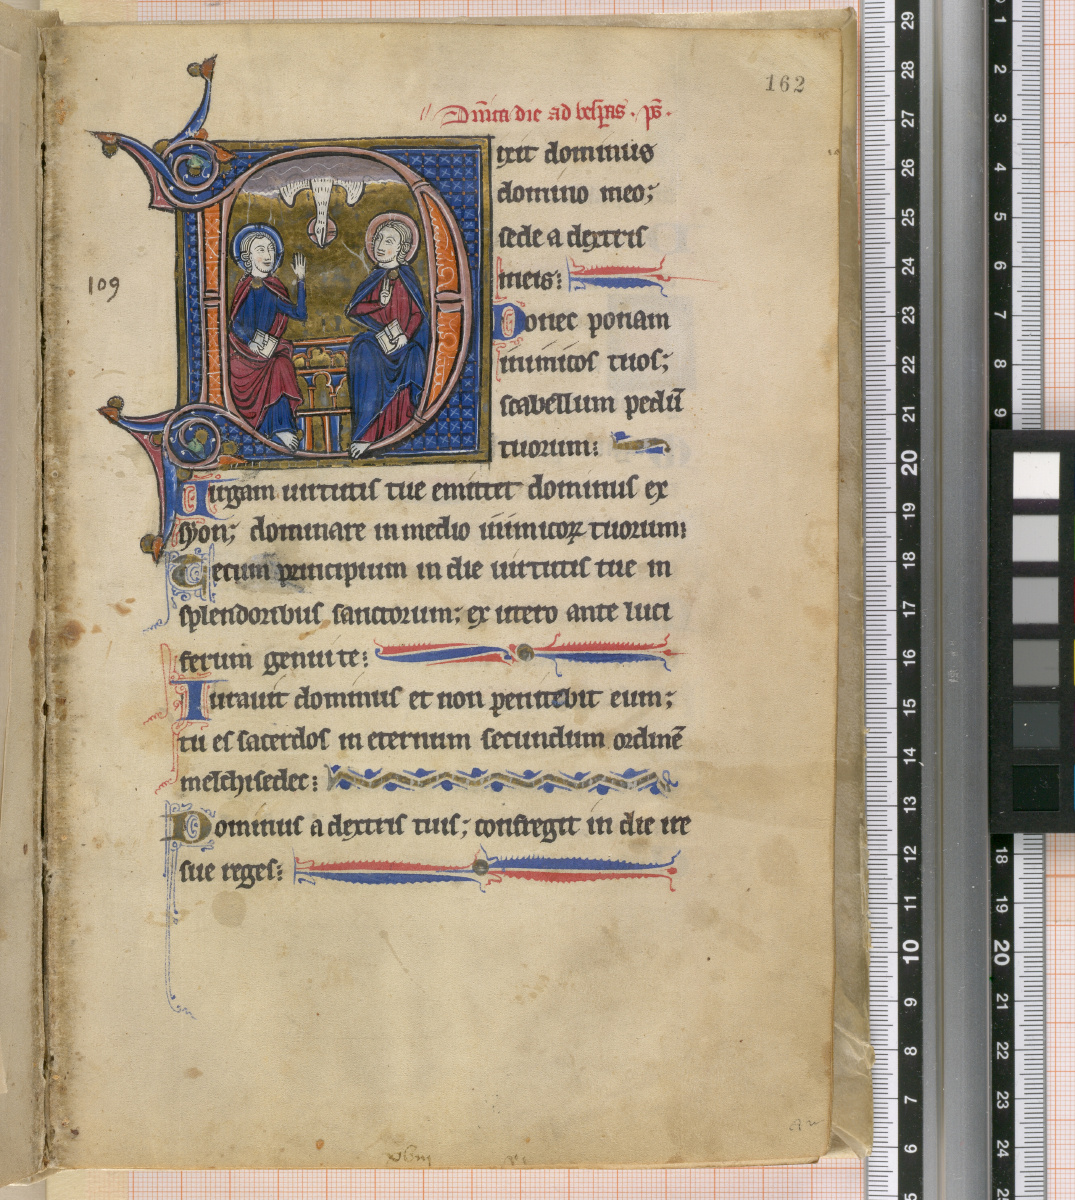 162
Dn̄ica die ad vesp̄as . ps̄ .
Dixit dominus
domino meo;
sede a dextris
meis:
109
Donec ponam
inimicos tuos;
scabellum pedū
tuorum:
Uirgam uirtutis tue emittet dominus ex
syon; dominare in medio inimicoꝝ tuorum:
Tecum principium in die uirtutis tue in
splendoribus sanctorum; ex utero ante luci
ferum genui te:
Iurauit dominus et non penitebit eum;
tu es sacerdos in eternum secundum ordinē
melchisedec:
Dominus a dextris tuis; confregit in die ire
sue reges: